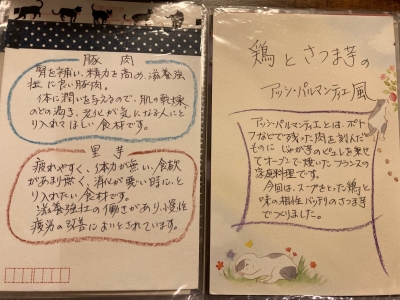 豚肉
腎を補い、精力を高め、滋養強
壮に良い豚肉。
体に潤いを与えるので、肌の乾燥
のどの渇き、老化が気になる人にと
り入れてほしい食材です。
里芋
疲れやすく、体力が無い、食欲
があまり無く、消化が悪い時にと
り入れたい食材です。
滋養強壮の働きがあり、慢性
疲労の改善によいとされています。
鶏とさつま芋の
アッシ・パルマンティエ風
アッシ・パルマンティエとは、ポト
フなどで残った肉を刻んだ
ものに じゃが芋のピュレを乗せ
てオーブンで焼いたフランスの
家庭料理です。
今回は、スープをとった鶏と
味の相性バッチリのさつま芋
でつくりました。